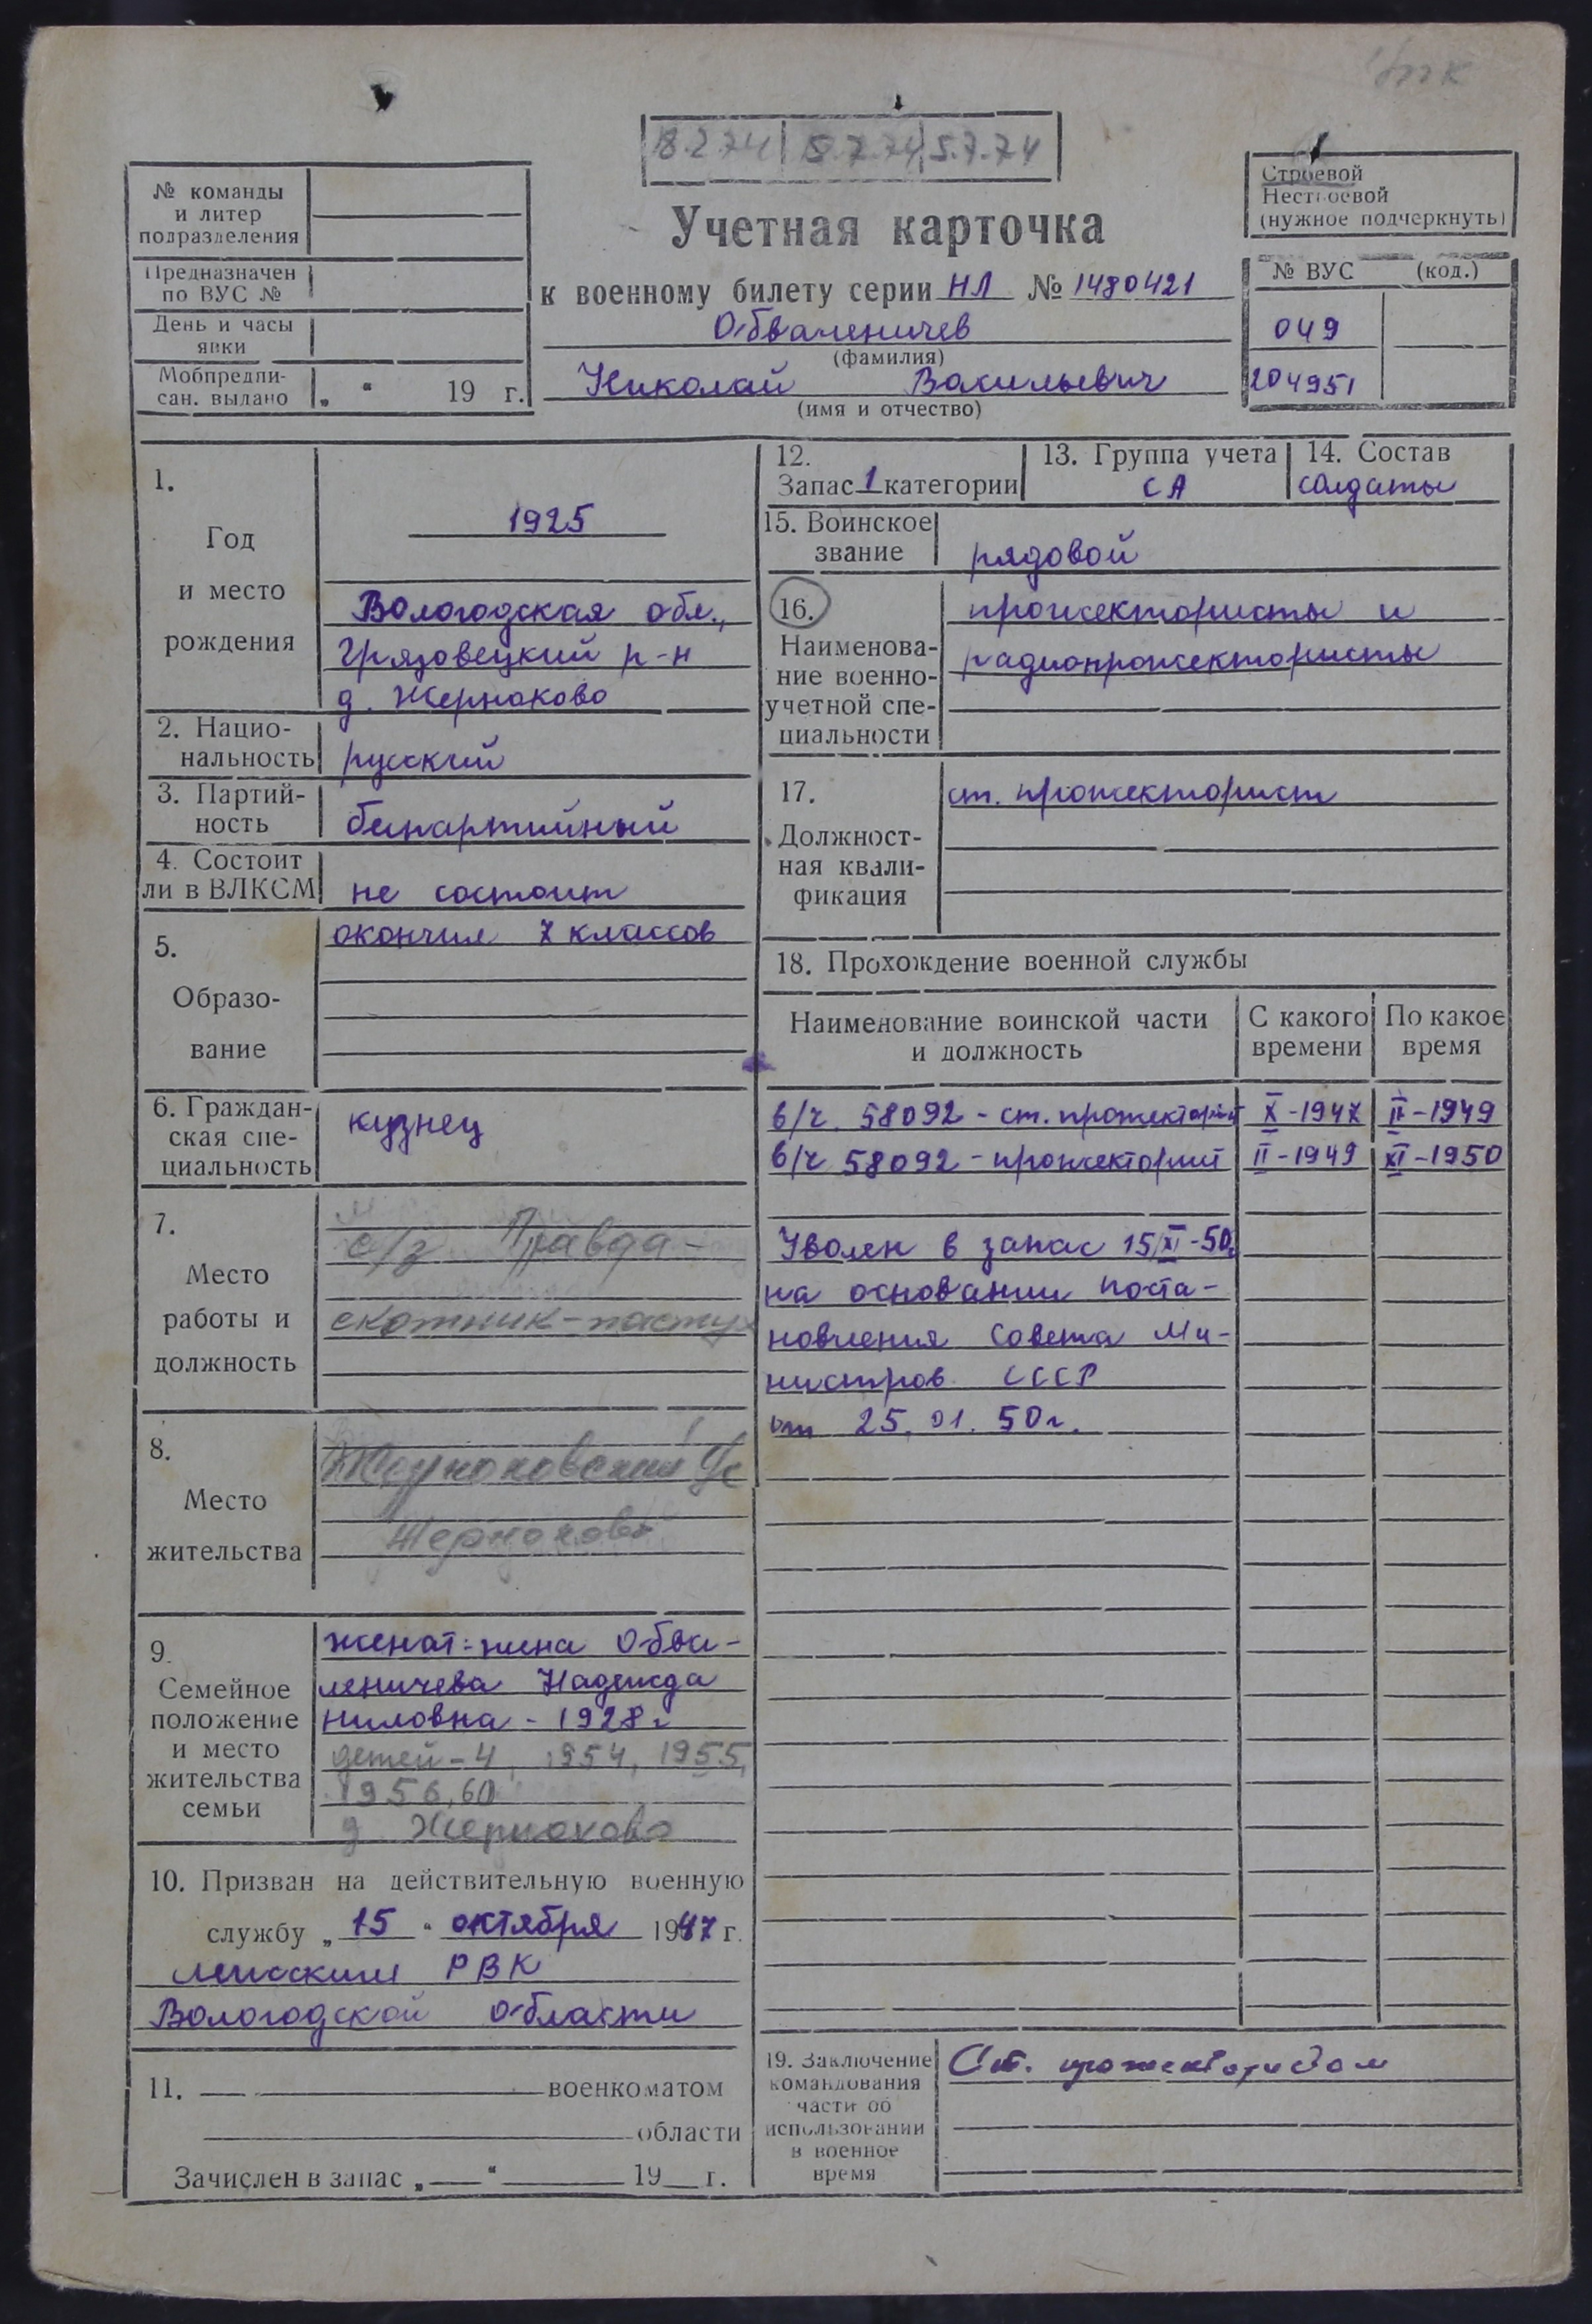 18.2.74 8.7.74 5.7.74
№ команды
и литер
подразделения
Предназначен
по ВУС №
День и часы
явки
Мобпредпи-
сан. выдано „ “ 19 г.
Учетная карточка
к военному билету серии НЛ № 1480421
Обваленичев
(фамилия)
Николай Васильевич
(имя и отчество)
Строевой
Нестроевой
(нужное подчеркнуть)
№ ВУС (код.)
049
204951
1.
Год
и место
рождения
1925
Вологодская обл.,
Грязовецкий р-н
д. Жерноково
2. Нацио-
нальность
русский
3. Партий-
ность
беспартийный
4. Состоит
ли в ВЛКСМ
не состоит
5.
Образо-
вание
окончил 7 классов
6. Граждан-
ская спе-
циальность
кузнец
7.
Место
работы и
должность
с/з Правда-
скотник-пастух
8.
Место
жительства
Жерноковский с/с
Жерноково
9.
Семейное
положение
и место
жительства
семьи
женат: жена Обва-
леничева Надежда
Ниловна - 1928 г
детей - 4, 1954, 1955,
1956, 60
д Жерноково
10. Призван на действительную военную
службу „ 15 “ октября 1947 г.
РВК
Вологодской области
11. военкоматом
области
Зачислен в запас „ “ 19 г.
12.
Запас 1 категории
13. Группа учета
СА
14. Состав
солдаты
15. Воинское
звание
рядовой
16.
Наименова-
ние военно-
учетной спе-
циальности
прожектористы и
радиопрожектористы
17.
Должност-
ная квали-
фикация
ст. прожекторист
18. Прохождение военной службы
Наименование воинской части
и должность
С какого
времени
По какое
время
в/ч 58092 - ст. прожекторист X - 1947 II - 1949
в/ч 58092 - прожекторист II - 1949 XI - 1950
Уволен в запас 15/XI - 50г
на основании поста-
новления Совета Ми-
нистров СССР
от 25.01.50г.
19. Заключение
командования
части об
использовании
в военное
время
Ст. прожектористом